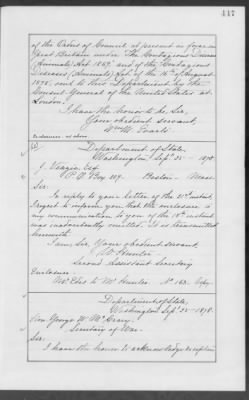 447
of the Orders of Council at present in force in
Great Britain under "The Contagious Diseases
(Animals) Act 1869" and of the Contagious
Diseases (Animals) Act, of the 16th of August
1878, sent to this Department by the
Consul General of the United States at
London.
I have the honor to be, Sir,
Your obedient servant,
Wm M. Evarts
Enclosures as above
Department of State,
Washington Sept. 25 1878.
J. Esq.
P.O. Box Boston Mass.
Sir:
In reply to your letter of the 21st instant,
I regret to inform you that the enclosure in
my communication to you of the 18th instant
was inadvertently omitted. It is transmitted
herewith.
I am, Sir, Your obedient servant,
W. Hunter
Second Assistant Secretary
Enclosure
to Mr Hunter. No 163. Copy.
Department of State,
Washington Sept. 25 1878.
Hon. George W. McCrary
Secretary of War
Sir:
I have the honor to acknowledge reception